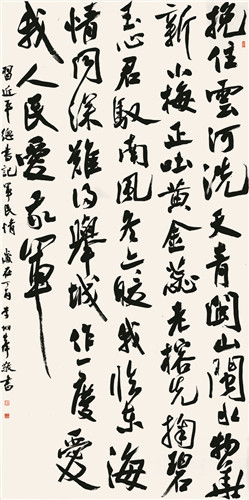 挽住雲河洗天青闽山闽水物華
新小梅正吐黄金蕊老榕先掬碧
玉心君馭南風冬亦暖我臨東海
情同深難得舉城作一慶愛
我人民愛我軍
習近平總書記軍民情 歲在丁酉 敬書